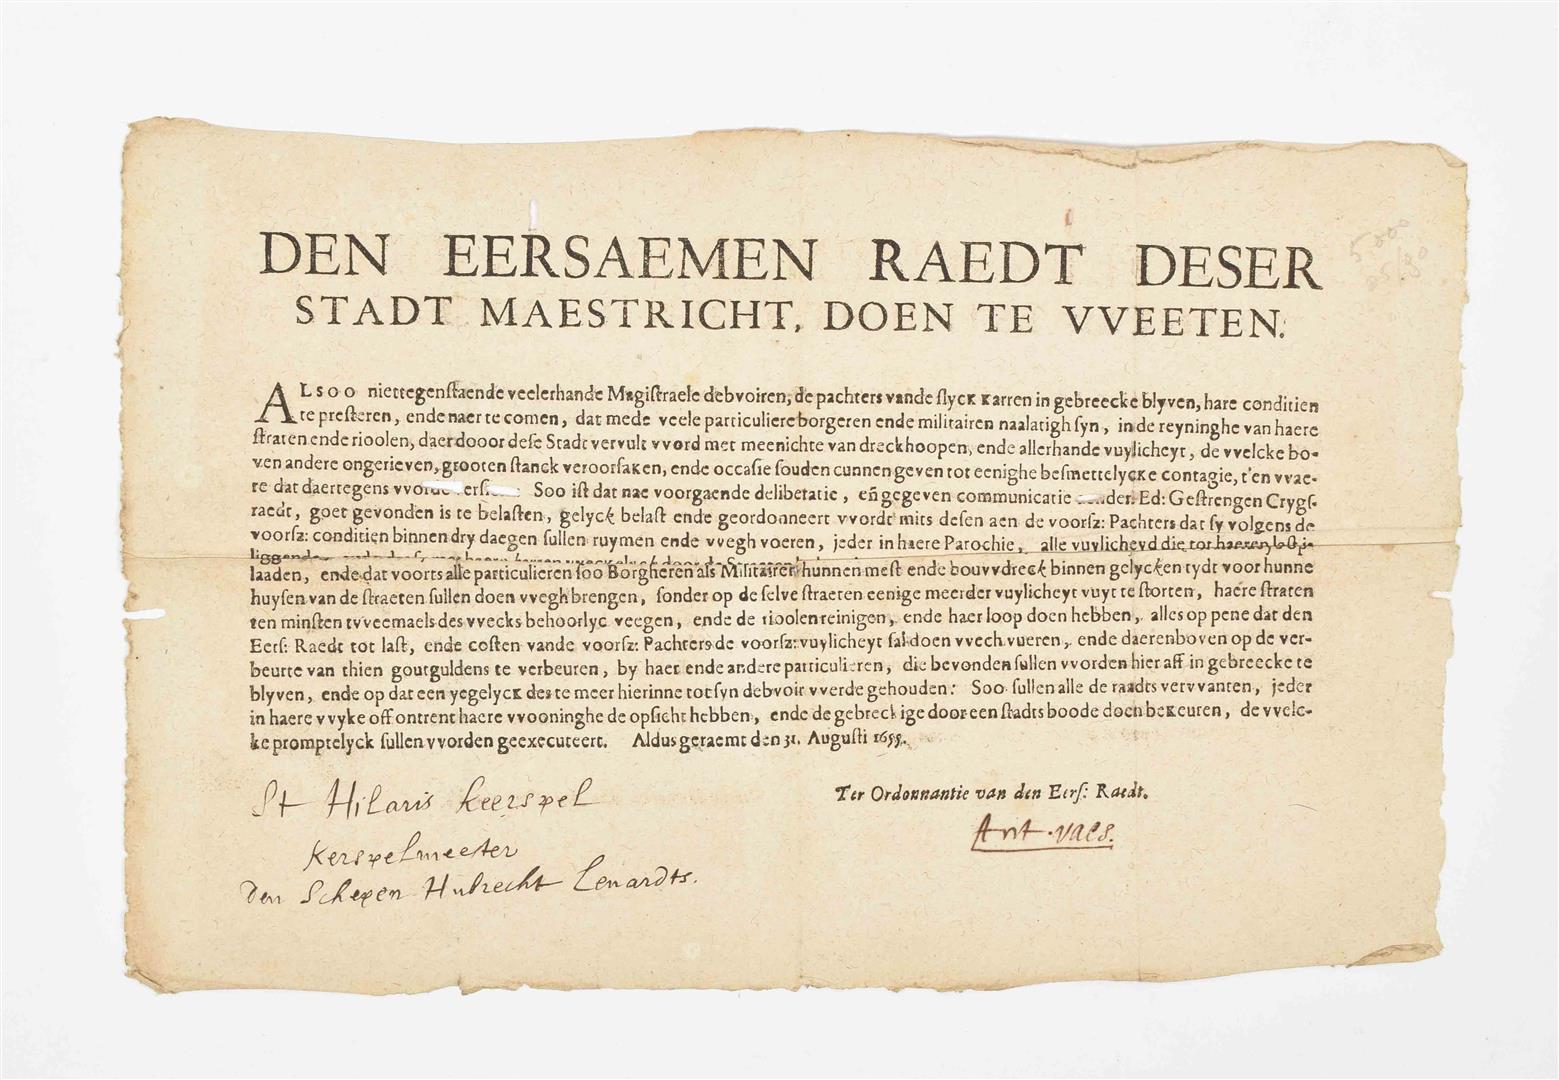 DEN EERSAEMEN RAEDT DESER
STADT MAESTRICHT, DOEN TE VVEETEN.
ALSOO niettegenstaende veelerhande Magistraele debvoiren, de pachters vande slyck karren in gebreecke blyven, hare conditien
te presteren, ende naer te comen, dat mede veele particuliere borgeren ende militairen naalatigh syn, in de reyninghe van haere
straten ende rioolen, daer dooor dese Stadt vervult vvord met meenichte van dreckhoopen, ende allerhande vuylicheyt, de vvelcke bo-
ven andere ongerieven, grooten stanck veroorsaken, ende occasie souden cunnen geven tot eenighe besmettelycke contagie, t'en vvae-
re dat daertegens vvorde versien: Soo ist dat nae voorgaende deliberatie, en̄ gegeven communicatie der Ed: Gestrengen Crygs-
raedt, goet gevonden is te belasten, gelyck belast ende geordonneert vvordt mits desen aen de voorsz: Pachters dat sy volgens de
voorsz: conditien binnen dry daegen sullen ruymen ende vvegh voeren, jeder in haere Parochie, alle vuylicheyd die tot
liggende
laaden, ende dat voorts alle particulieren soo Borgheren als Militairen hunnen mest ende bouvvdreck binnen gelycken tydt voor hunne
huysen van de straeten sullen doen vveghbrengen, sonder op de selve straeten eenige meerder vuylicheyt vuyt te storten, haere straten
ten minsten tvveemaels des vvecks behoorlyc veegen, ende de rioolen reinigen, ende haer loop doen hebben, alles op pene dat den
Eers: Raedt tot last, ende costen vande voorsz: Pachters de voorsz: vuylicheyt sal doen vvech vueren, ende daerenboven op de ver-
beurte van thien goutguldens te verbeuren, by haer ende andere particulieren, die bevonden sullen vvorden hier aff in gebreecke te
blyven, ende op dat een yegelyck des te meer hierinne tot syn debvoir vverde gehouden: Soo sullen alle de raadts vervvanten, jeder
in haere vvyke off ontrent haere vvooninghe de opsicht hebben, ende de gebreckige door een stadts boode doen bekeuren, de vvelc-
ke promptelyck sullen vvorden geexecuteert. Aldus geraemt den 31. Augusti 1655.
St Hilaris Keerspel
Ter Ordonnantie van den Eers: Raedt.
Ant. Vaes.
Kerspelmeester
Den Schepen Hubrecht Lenardts.
5000